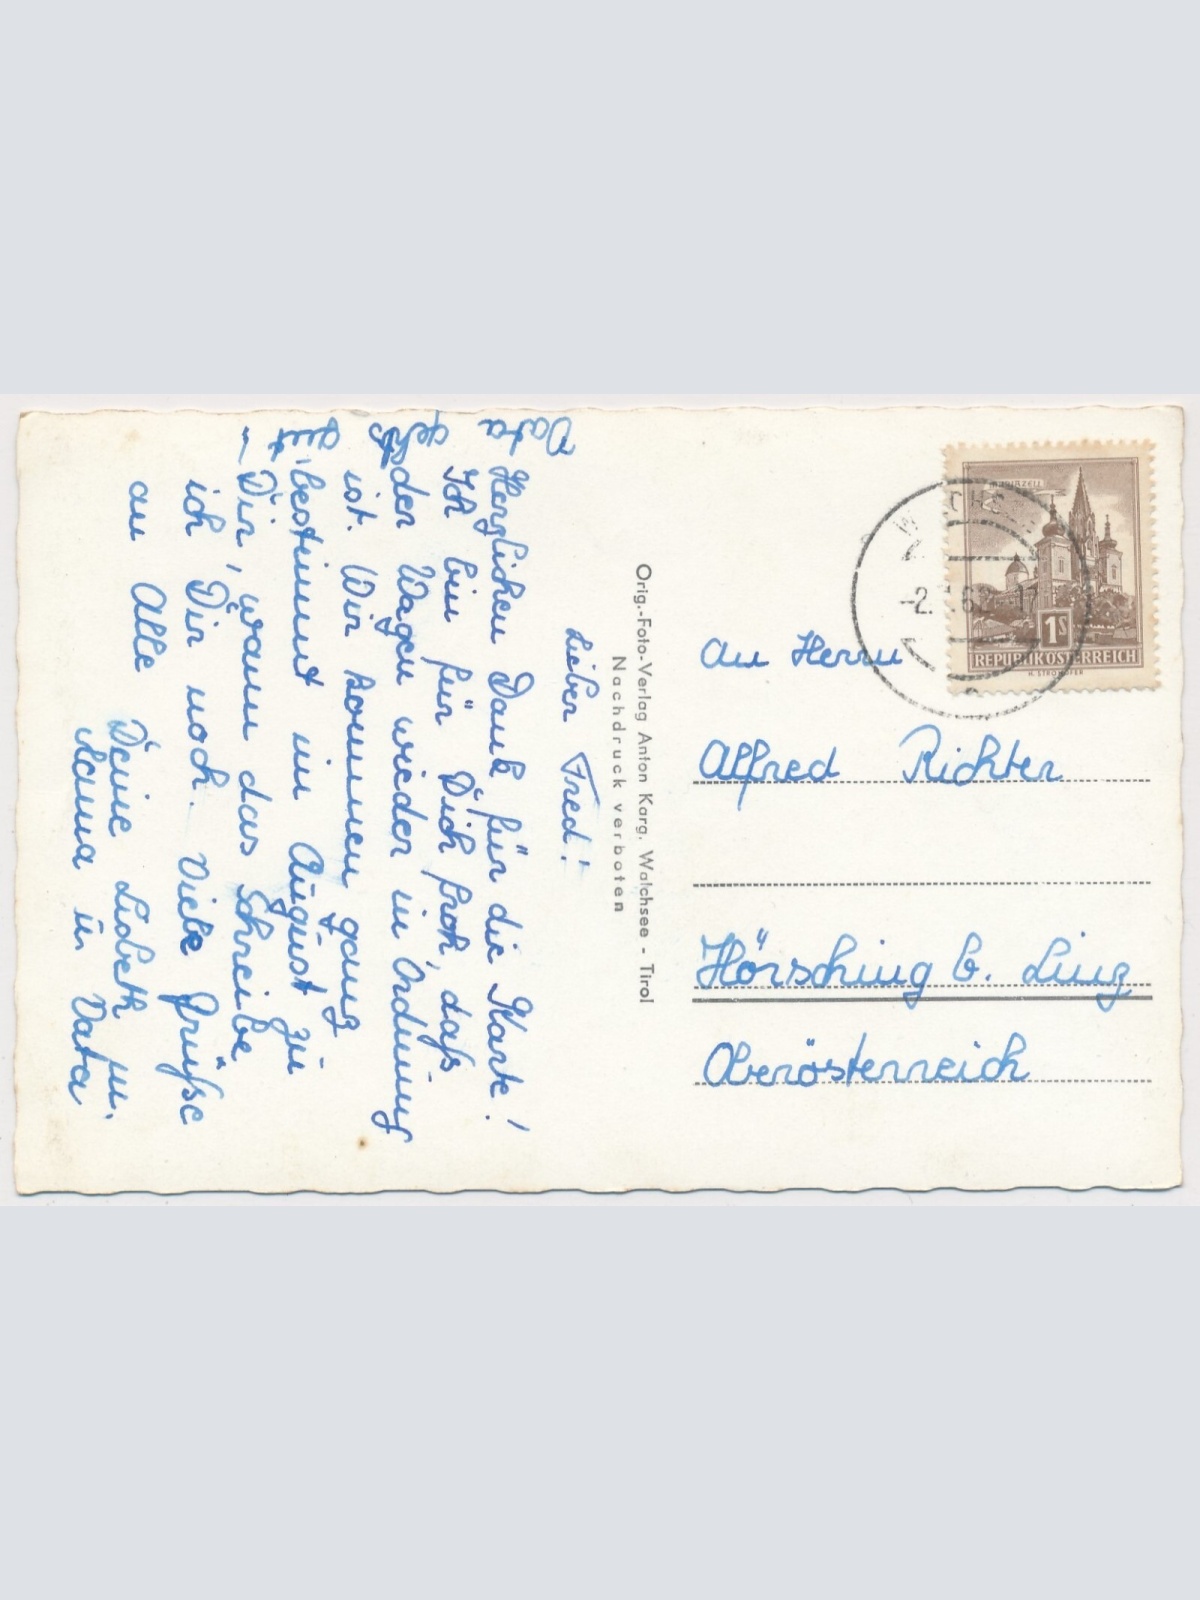 Lieber Fred!
Herzlichen Dank für die Karte!
Ich bin für Dich froh, daß
der Wagen wieder in Ordnung
ist. Wir kommen ganz
bestimmt im August zu
Dir, wann das Schreibe
ich Dir noch. Viele Grüße
an Alle Deine Lisbeth u.
Mama u. Vata
Vata
geht's
gut
Orig.-Foto-Verlag Anton Karg, Walchsee - Tirol
Nachdruck verboten
MARIAZELL
1S
REPUBLIK ÖSTERREICH
An Herrn
Alfred Richter
Hörsching b. Linz
Oberösterreich